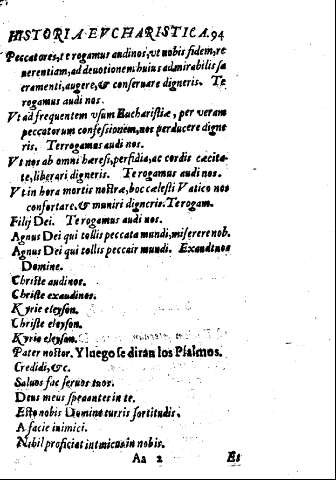 HISTORIA EVCHARISTICA. 94
Peccatores, te rogamus audi nos, vt nobis fidem, re
uerentiam, ad deuotionem huius admirabilis sa
cramenti, augere, & conseruare digneris. Te
rogamus audi nos.
Vt ad frequentem vsum Eucharistiæ, per veram
peccatorum confessionem, nos perducere digne
ris. Te rogamus audi nos.
Vt nos ab omni hæresi, perfidia, ac cordis cæcita-
te, liberari digneris. Te rogamus audi nos.
Vt in hora mortis nostræ, hoc cælesti Viatico nos
confortare, & muniri digneris. Te rogam.
Filij Dei. Te rogamus audi nos.
Agnus Dei qui tollis peccata mundi, miserere nob.
Agnus Dei qui tollis peccair mundi. Exaudi nos
Domine.
Christe audi nos.
Christe exaudi nos.
Kyrie eleyson.
Christe eleyson.
Kyrie eleyson.
Pater noster. Y luego se diran los Psalmos.
Credidi, &c.
Saluos fac seruos tuos.
Deus meus sperantes in te.
Esto nobis Domine turris fortitudis.
A facie inimici.
Nihil proficiat inimicus in nobis.
Aa 2 Et